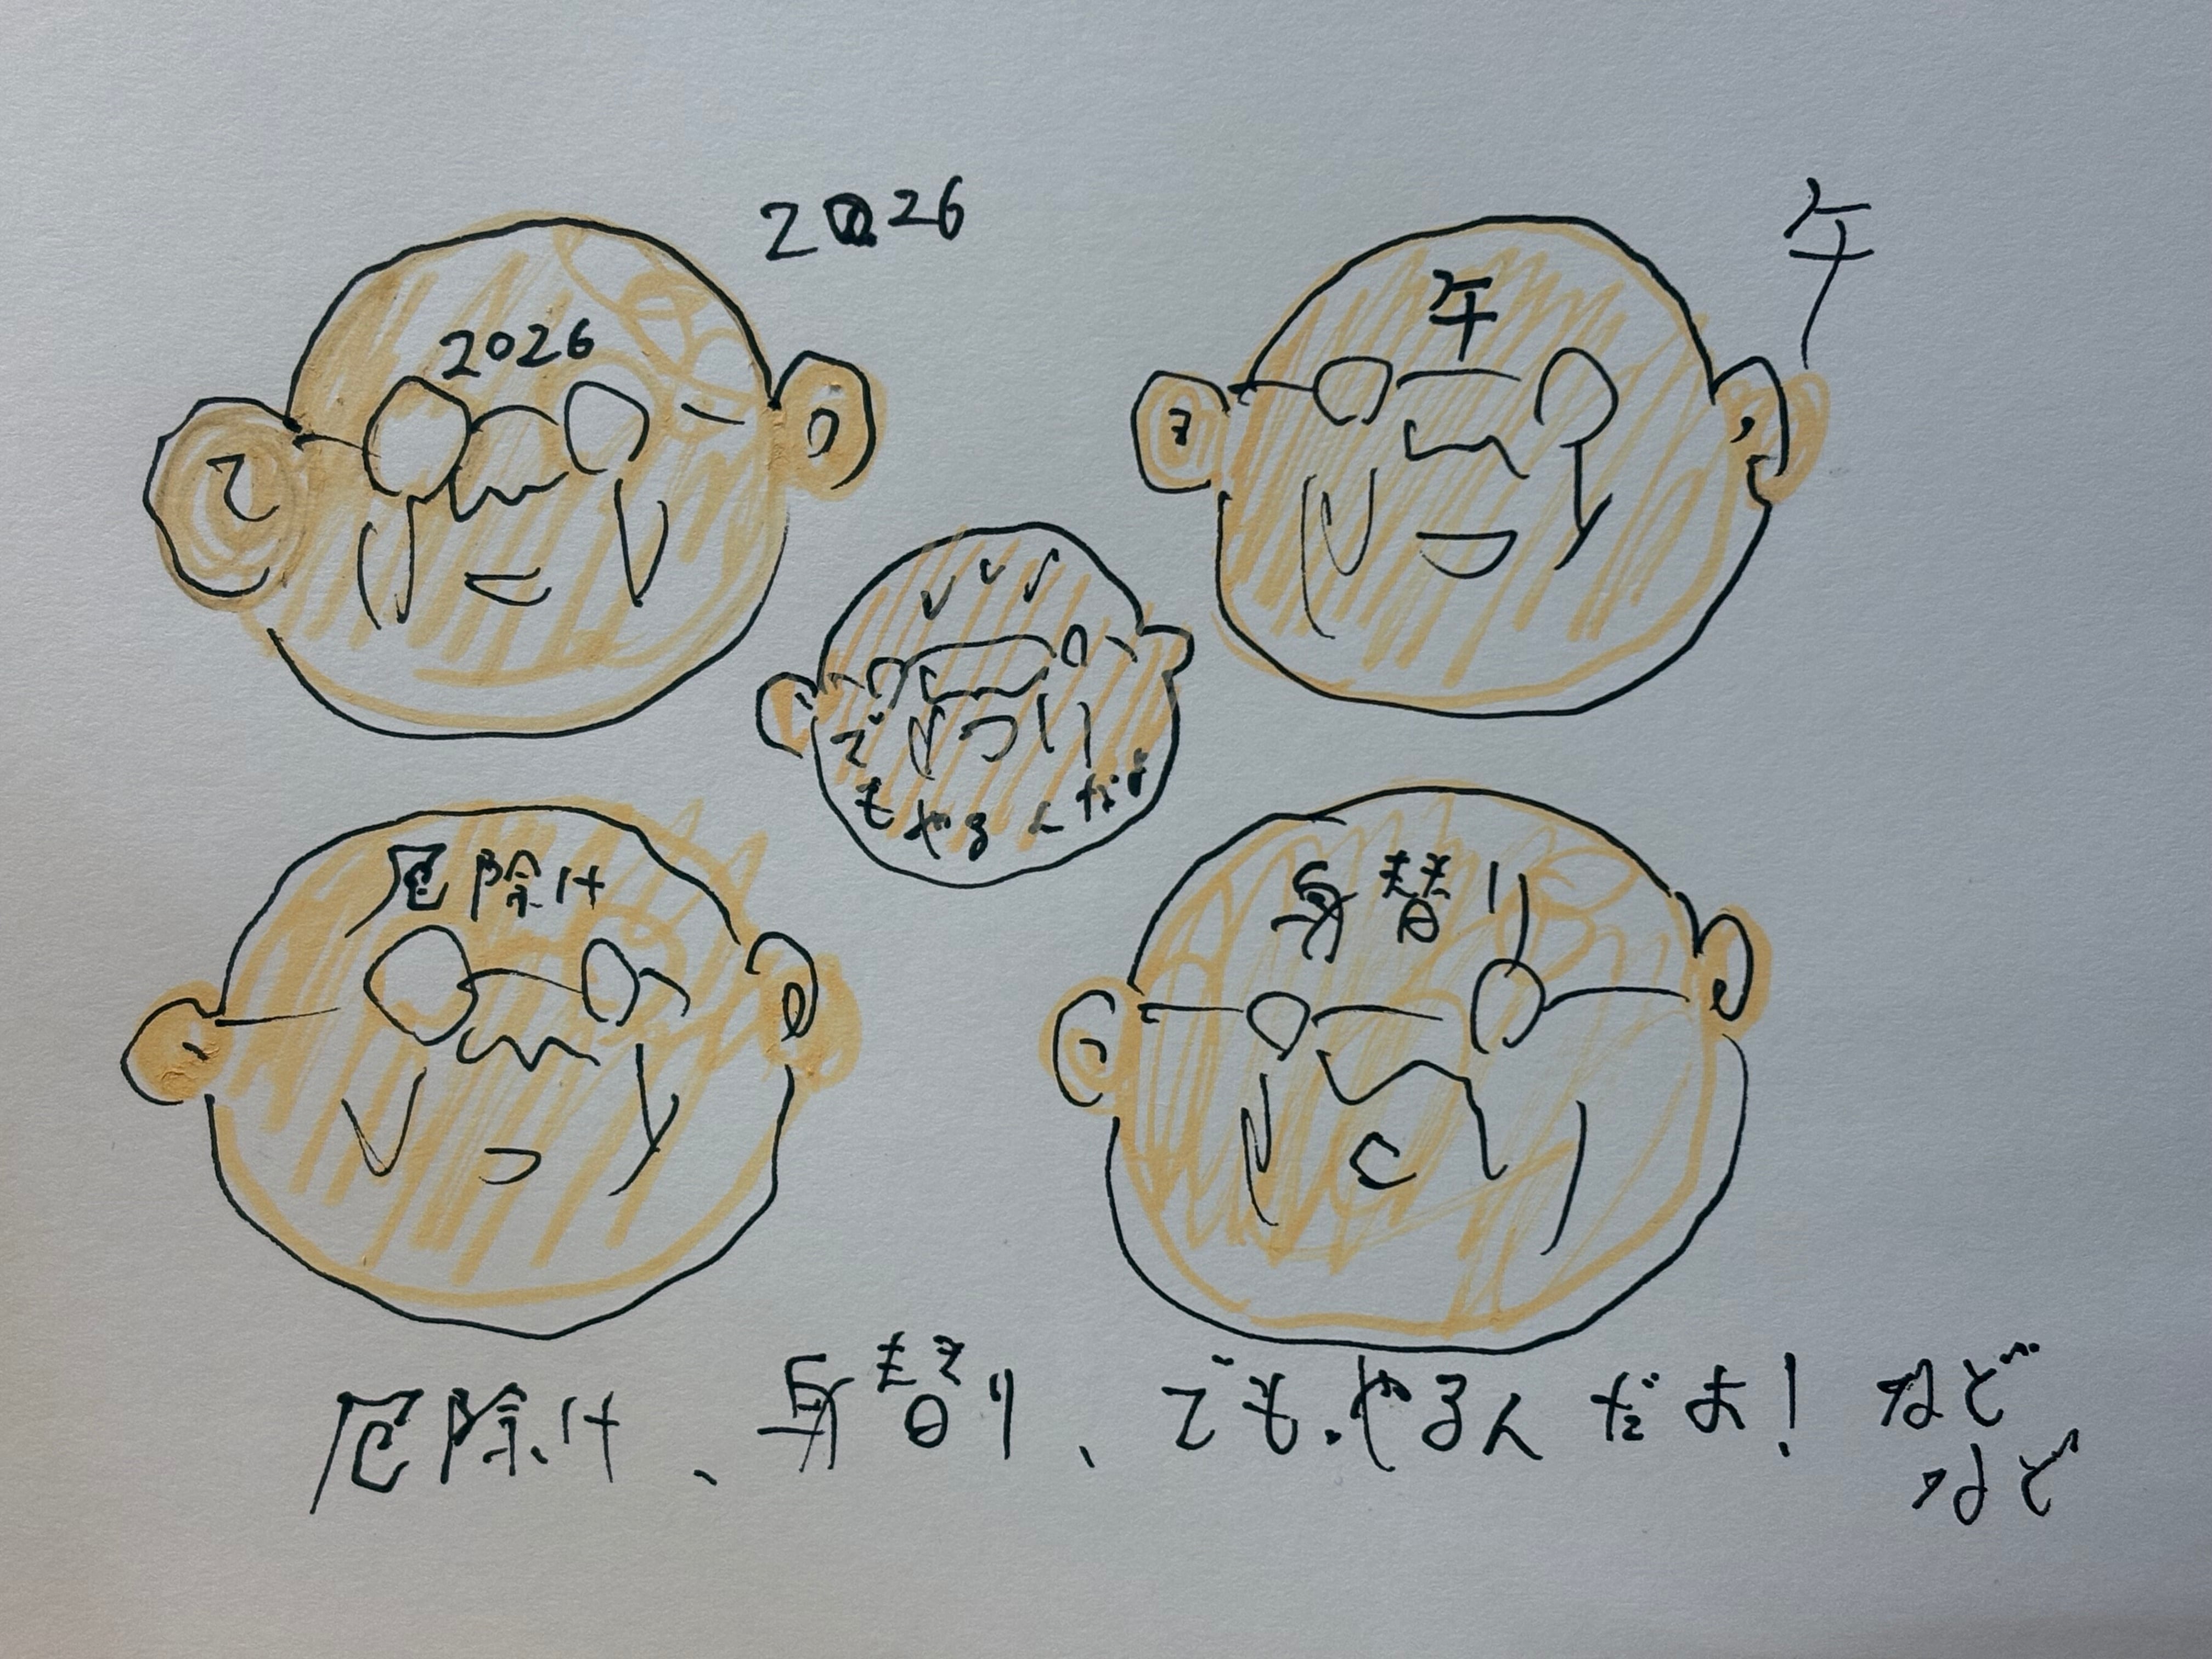 2026
午
2026
午
でも
やるんだよ
厄除け
身替り
厄除け、身替り、でもやるんだよ! など
など